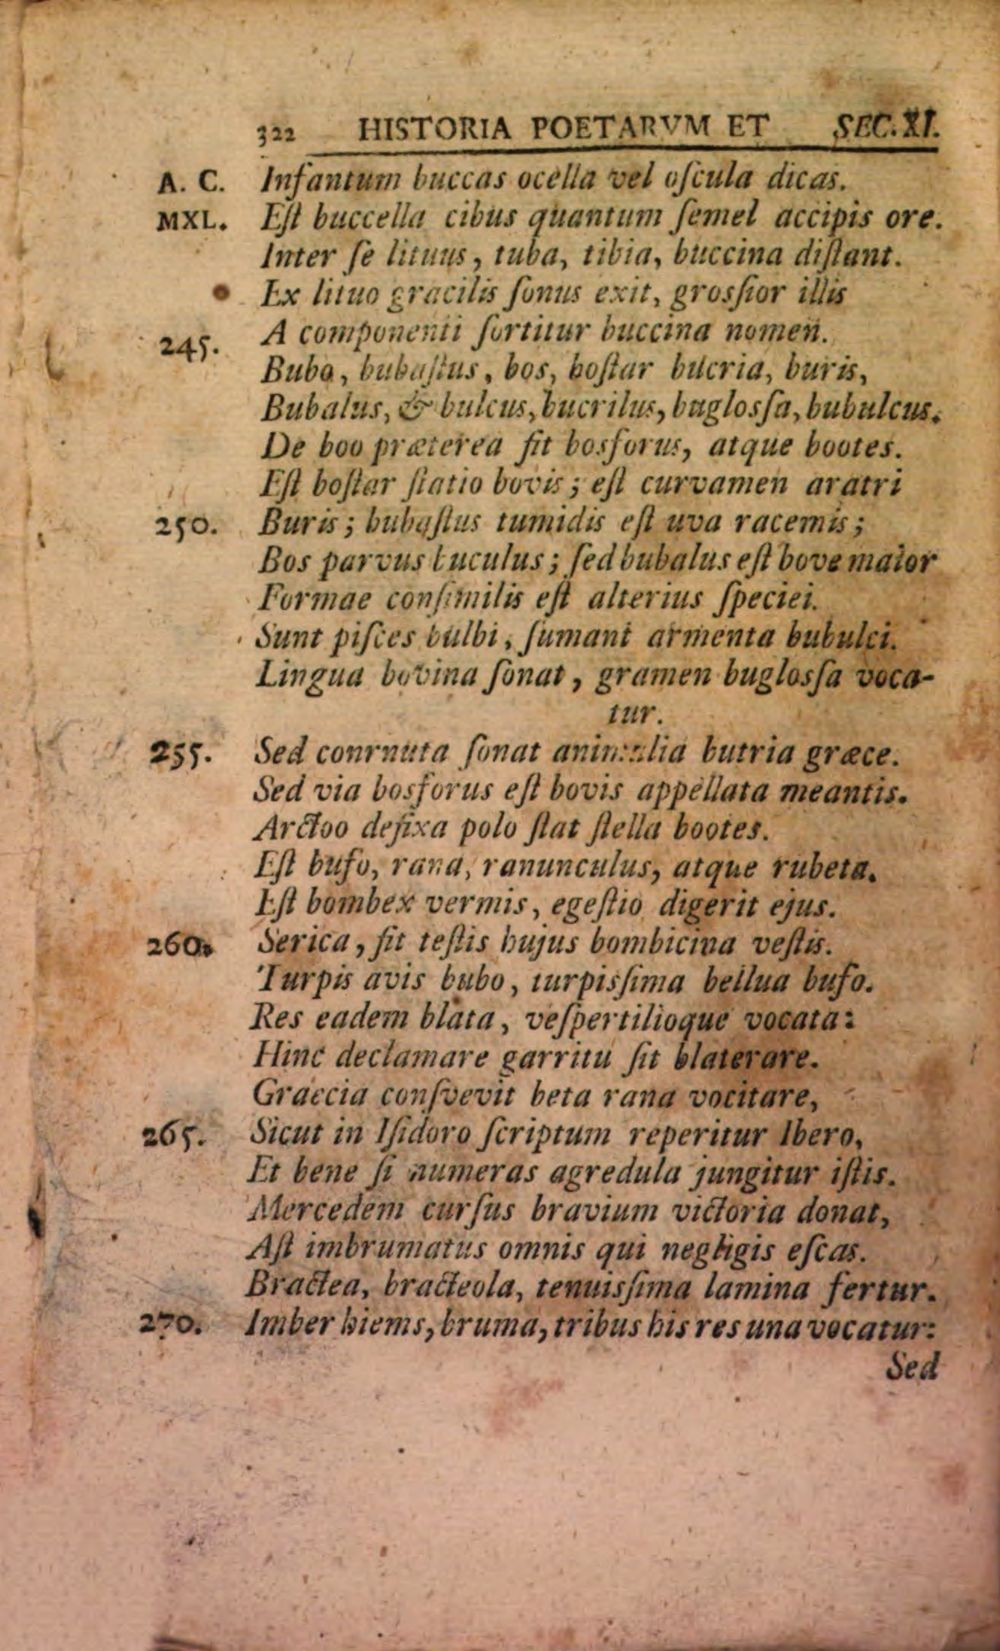 322 HISTORIA POETARVM ET SEC. XI.
A. C. Infantum buccas ocella vel oſcula dicas.
MXL. Eſt buccella cibus quantum ſemel accipis ore.
Inter ſe lituus, tuba, tibia, buccina diſtant.
Ex lituo gracilis ſonus exit, grosſior illis
245. A componenti ſortitur buccina nomen.
Bubo, bubaſtus, bos, boſtar bucria, buris,
Bubalus, & bulcus, bucrilus, buglosſa, bubulcus.
De boo præterea fit bosforus, atque bootes.
Eſt boſtar ſtatio bovis; eſt curvamen aratri
250. Buris; bubaſtus tumidis eſt uva racemis;
Bos parvus buculus; ſed bubalus eſt bove maior
Formae conſimilis eſt alterius ſpeciei.
Sunt piſces bulbi, ſumant armenta bubulci.
Lingua bovina ſonat, gramen buglosſa voca-
tur.
255. Sed conrnuta ſonat animalia butria græce.
Sed via bosforus eſt bovis appellata meantis.
Arctoo defixa polo ſtat ſtella bootes.
Eſt bufo, rana, ranunculus, atque rubeta.
Eſt bombex vermis, egeſtio digerit ejus.
260. Serica, fit teſtis hujus bombicina veſtis.
Turpis avis bubo, turpisſima bellua bufo.
Res eadem blata, veſpertilioque vocata:
Hinc declamare garritu fit blaterare.
Graecia conſvevit beta rana vocitare,
265. Sicut in Iſidoro ſcriptum reperitur Ibero,
Et bene ſi numeras agredula jungitur iſtis.
Mercedem curſus bravium victoria donat,
Aſt imbrumatus omnis qui negligis eſcas.
Bractea, bracteola, tenuisſima lamina fertur.
270. Imber hiems, bruma, tribus his res una vocatur:
Sed